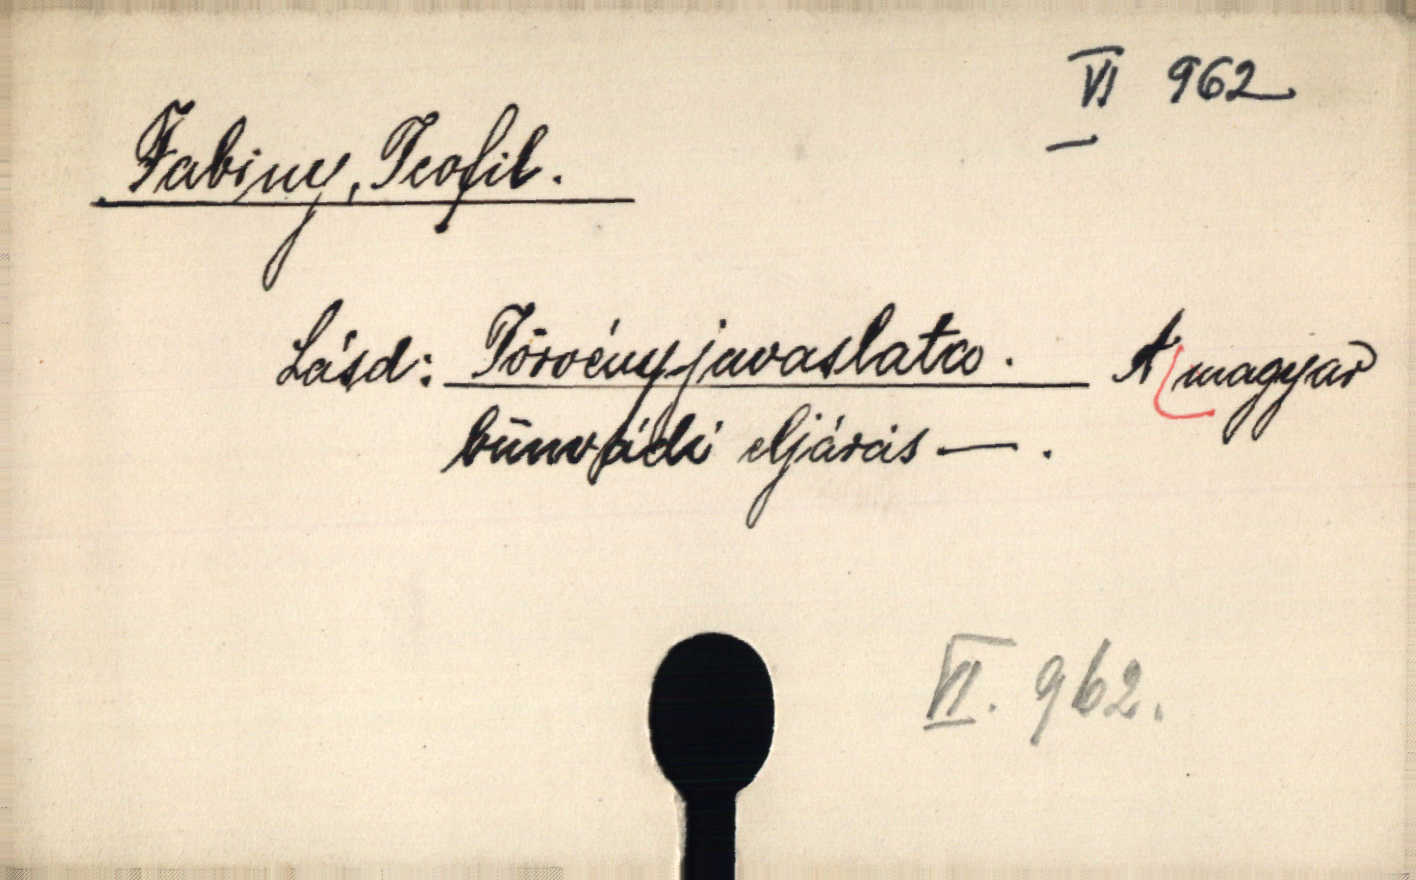 VI 962
Fabiny, Teofil.
Lásd: Törvényjavaslata. A magyar
bűnvádi eljárás — .
VI. 962.